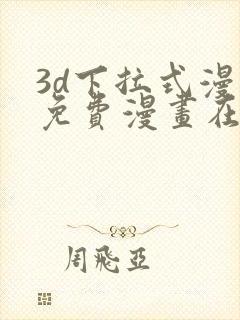 3d下拉式漫
免費漫畫在
周飛亞